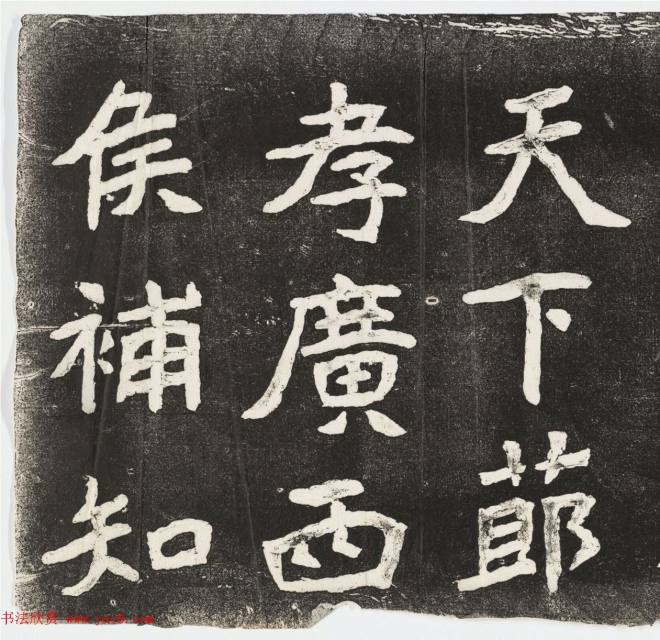 天下莭
孝廣西
侯補知
书法欣赏 www.yac8.com